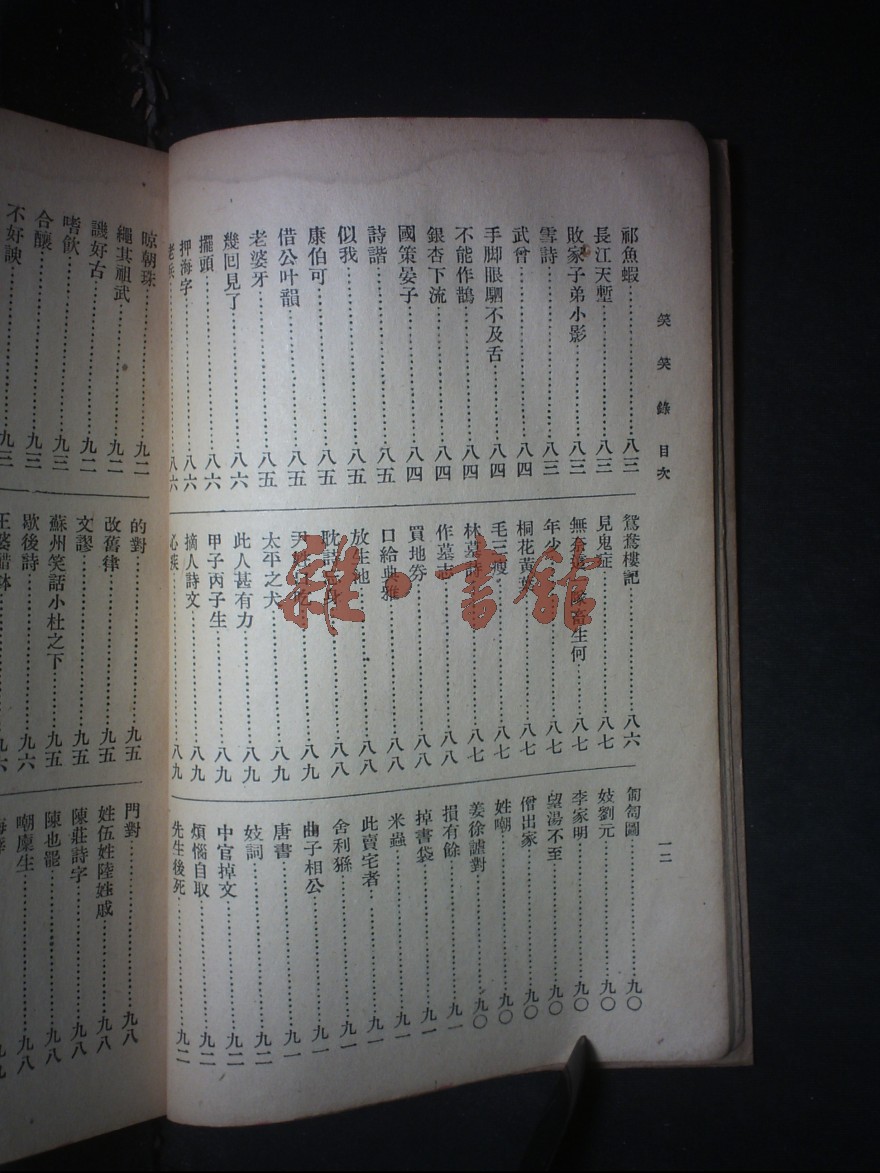 笑笑錄 目次
一二
祁魚蝦……八三
長江天塹……八三
敗家子弟小影……八三
雪詩……八三
武弁……八四
手脚眼駟不及舌……八四
不能作鵲……八四
銀杏下流……八四
國策晏子……八四
詩諧……八五
似我……八五
康伯可……八五
借公叶韻……八五
老婆牙……八五
幾回見了……八六
擺頭……八六
押海字……八六
老兵……八六
鴛鴦樓記……八六
見鬼症……八七
無奈這一隊畜生何……八七
年少……八七
桐花黃葉……八七
毛三瘦……八七
林墓詩……八八
作墓志……八八
買地券……八八
口給典雅……八八
放生池……八八
耽詩……八八
尹……八九
太平之犬……八九
此人甚有力……八九
甲子丙子生……八九
摘人詩文……八九
心疾……八九
匍匐圖……九〇
妓劉元……九〇
李家明……九〇
望湯不至……九〇
僧出家……九〇
姓嘲……九〇
姜徐謔對……九〇
損有餘……九一
掉書袋……九一
米蟲……九一
此賣宅者……九一
舍利猻……九一
曲子相公……九一
唐書……九一
妓詞……九二
中官掉文……九二
煩惱自取……九二
先生後死……九二
晾朝珠……九二
繩其祖武……九二
譏好古……九二
嗜飲……九三
合釀……九三
不好諛……九三
的對……九五
改舊律……九五
文謬……九五
蘇州笑話小杜之下……九五
歇後詩……九六
王婆醋鉢……九六
門對……九八
姓伍姓陸姓戚……九八
陳莊詩字……九八
陳也罷……九八
嘲廩生……九八
雜·書館